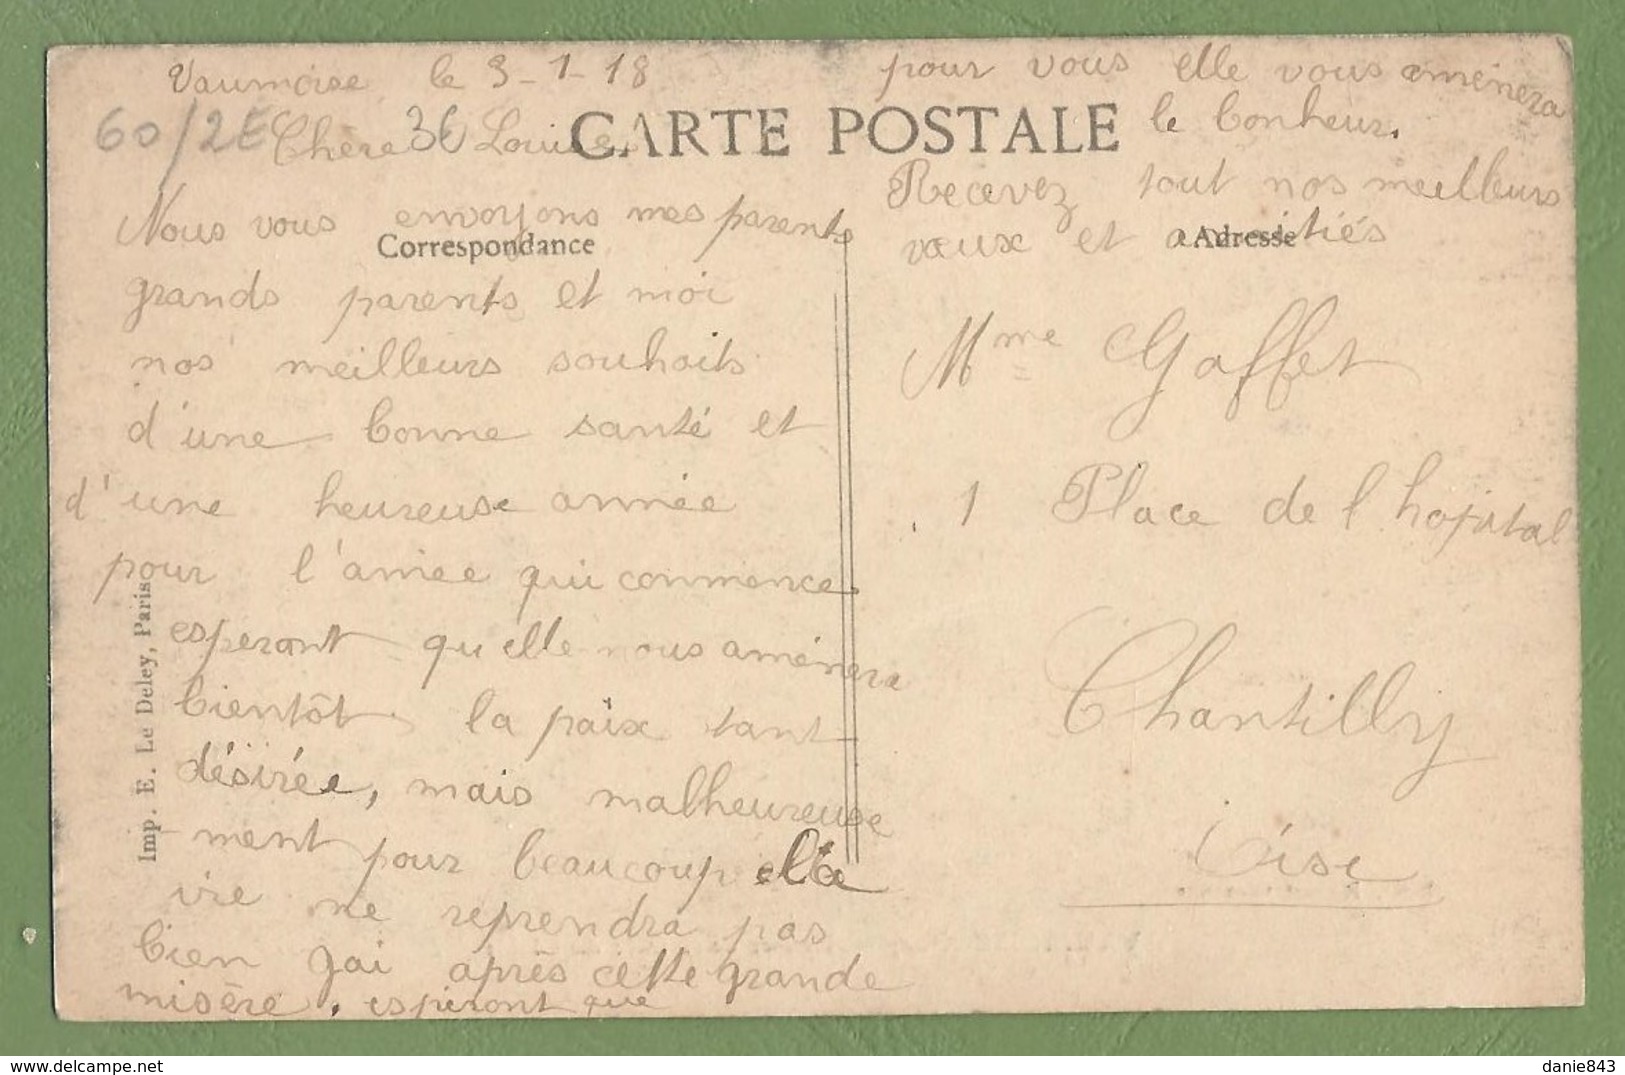 Vaumoise le 3-1-18
60/2E Chère 3E Louise
CARTE POSTALE
Correspondance
Nous vous envoyons mes parents
grands parents et moi
nos meilleurs souhaits
d'une bonne santé et
d'une heureuse année
pour l'année qui commence
esperont qu'elle nous aménera
bientôt la paix tant
désirée, mais malheureuse
ment pour beaucoup la
vie ne reprendra pas
bien gai après cette grande
misère. esperont que
pour vous elle vous aménera
le bonheur.
Recevez tout nos meilleurs
vœux et amitiés
Adresse
Mme Gaffet
1 Place de l hopital
Chantilly
Oise
Imp. E. Le Deley, Paris
danie843